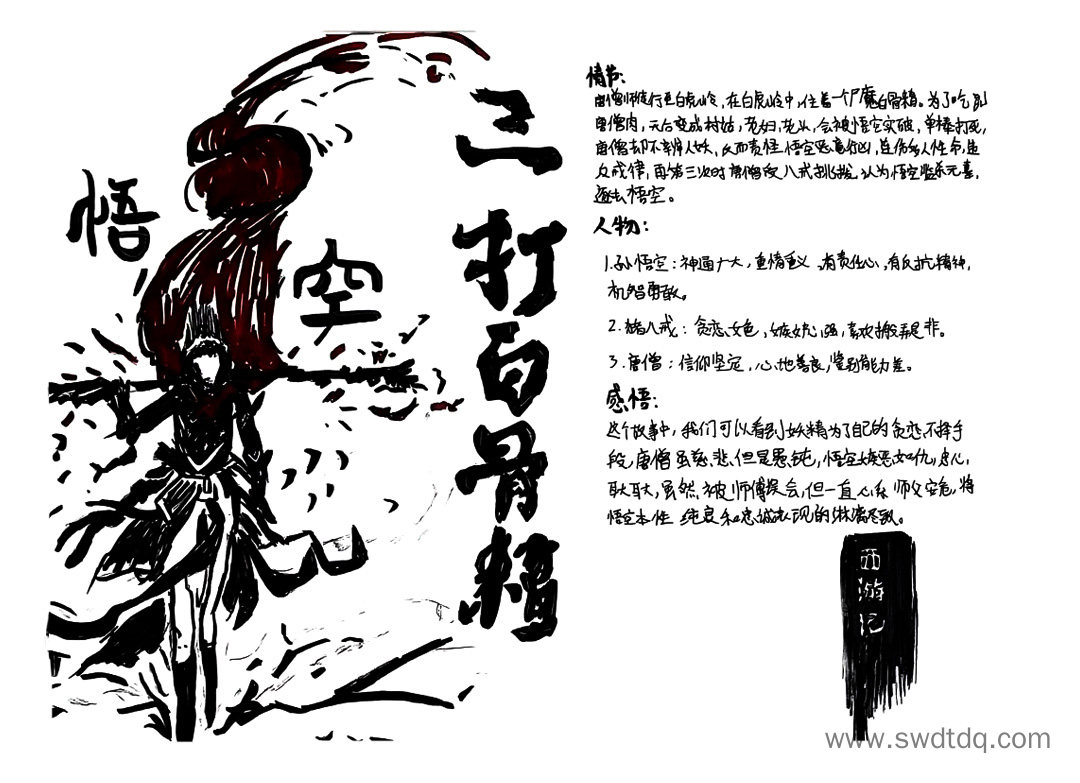 三打白骨精
悟空
情节:
唐僧师徒行至白虎岭,在白虎岭中,住着一个尸魔白骨精。为了吃到
唐僧肉,先后变成村姑,老妇,老头,全被悟空识破,单棒打死,
唐僧却不辨人妖,反而责怪悟空恶意行凶,连伤多人性命,违
反戒律,再第三次时唐僧受八戒挑拨,认为悟空滥杀无辜,
逐去悟空。
人物:
1.孙悟空:神通广大,重情重义,有责任心,有反抗精神,
机智勇敢。
2.猪八戒:贪恋女色,嫉妒心强,喜欢搬弄是非。
3.唐僧:信仰坚定,心地善良,鉴别能力差。
感悟:
这个故事中,我们可以看到妖精为了自己的贪恋不择手
段,唐僧虽慈悲但是愚钝,悟空嫉恶如仇,忠心
耿耿,虽然被师傅误会,但一直心系师父安危,将
悟空本性纯良和忠诚表现的淋漓尽致。
西游记
www.swdtdq.com